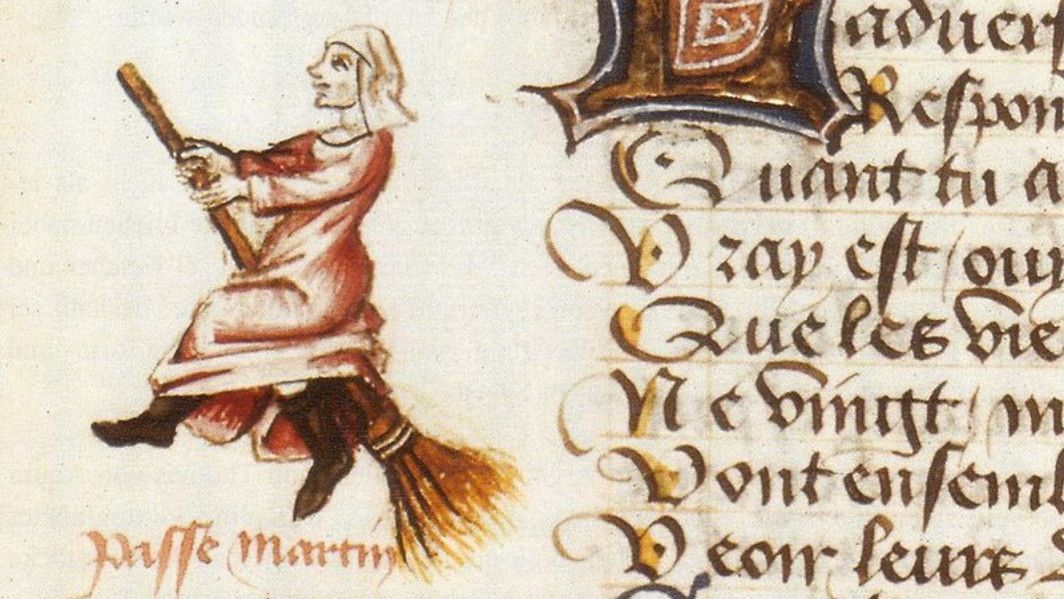 aduer
Respon
Quant tu a
Vray est / ouy
Que les vie
Ne vingt / m
Vont ensemb
Veoir leurs
passe martin